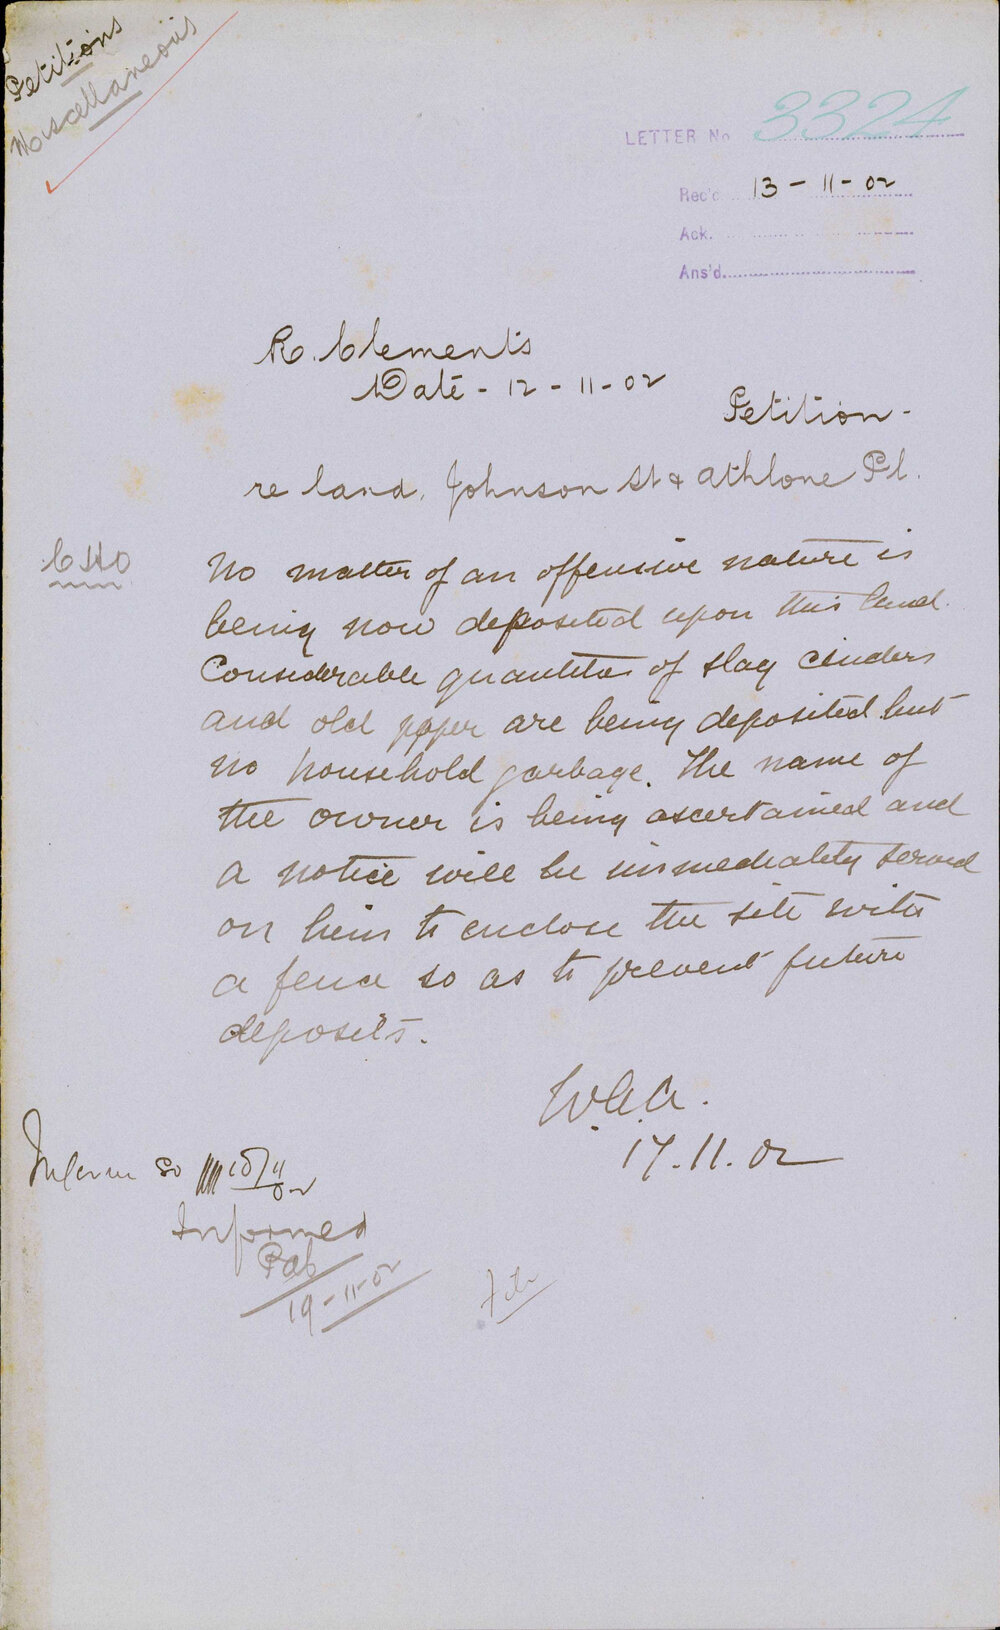 Petitions
Miscellaneous
LETTER No 3324
Rec'd 13-11-02
Ack.
Ans'd
R. Clements
Date - 12-11-02
Petition -
re land, Johnson St & Athlone Pl.
CHO
No matter of an offensive nature is
being now deposited upon this land.
Considerable quantities of slag cinders
and old paper are being deposited but
no household garbage. The name of
the owner is being ascertained and
a notice will be immediately served
on him to enclose the site with
a fence so as to prevent future
deposits.
W.G.A.
17.11.02
Inform so 18/11/02
Informed
19-11-02
File